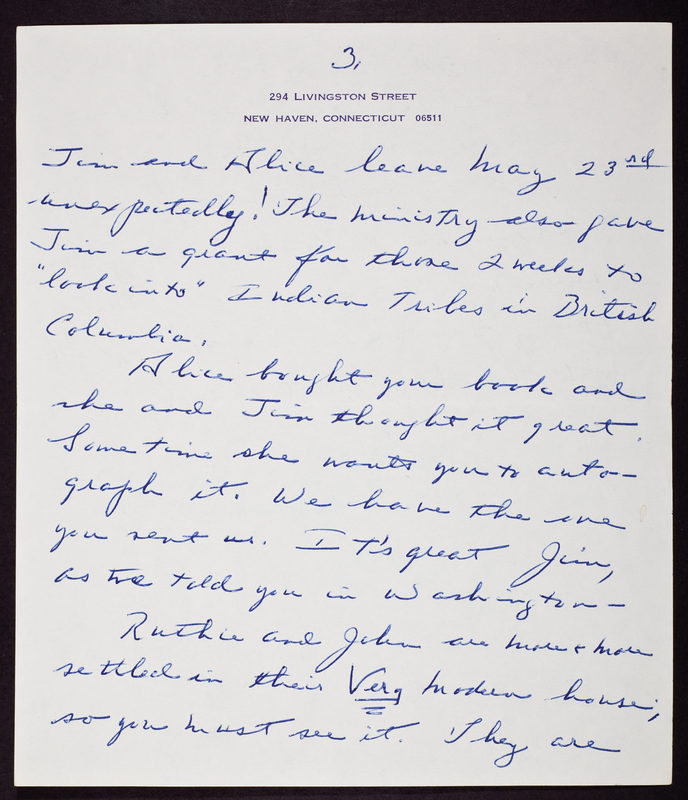 3.
294 LIVINGSTON STREET
NEW HAVEN, CONNECTICUT 06511
Jim and Alice leave May 23rd
unexpectedly! The ministry also gave
Jim a grant for those 2 weeks to
"look into" Indian Tribes in British
Columbia.
Alice bought your book and
she and Jim thought it great.
Sometime she wants you to auto-
graph it. We have the one
you sent us. It's great Jim,
as we told you in Washington -
Ruthie and John are more & more
settled in their Very modern house;
so you must see it. They are